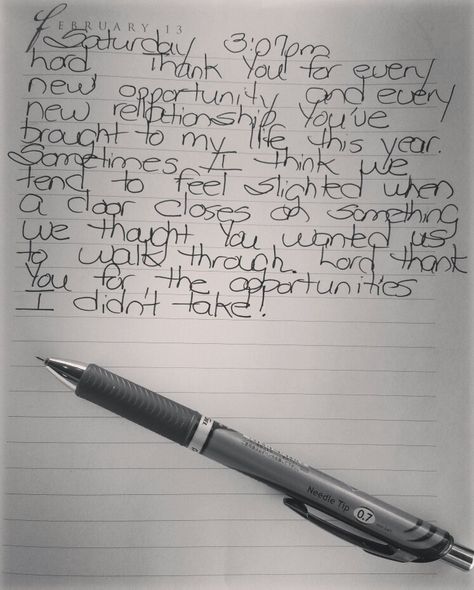 FEBRUARY 13
Saturday 3:07pm
Lord Thank You for every
new opportunity and every
new relationship You've
brought to my life this year.
Sometimes I think we
tend to feel slighted when
a door closes on something
we thought You wanted us
to walk through. Lord thank
You for the opportunities
I didn't take!
Needle Tip 0.7